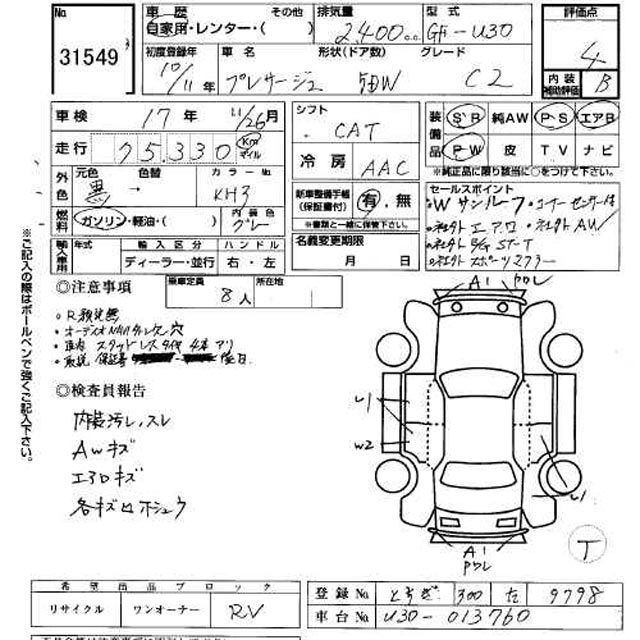 No. 31549
車歴 自家用・レンター・( ) その他
排気量 2400cc
型式 GF-U30
評価点 4
内装補助評価 B
初度登録年 10/11年
車名 プレサージュ
形状(ドア数) 5DW
グレード C2
車検 17年 11/26月
走行 75,330 Km マイル
シフト CAT
冷房 AAC
装備品 SR 純AW PS エアB
PW 皮 TV ナビ
※純正品に限り該当に○をつけて下さい。
外色 元色 黒 → 色替
カラーNo. KH3
燃料 ガソリン・軽油・( )
内装色 グレー
新車整備手帳(保証書付) 有・無
※書類と一緒に保管下さい。
名義変更期限 月 日
セールスポイント
・Wサンルーフ・コーナーセンサー付
・社外エアロ・社外AW
輸入車用 年式 輸入区分 ディーラー・並行 ハンドル 右・左
乗車定員 8人
所在地
◎注意事項
・車内 スタッドレスタイヤ 4本アリ
◎検査員報告
内装汚レ、スレ
AWキズ
エアロキズ
各キズ凹ホシュウ
※ご記入の際はボールペンで強くご記入下さい。
A1
U1
W2
U1
A1
T
希望出品ブロック
リサイクル ワンオーナー RV
登録No. とちぎ 300 た 9798
車台No. U30-013760